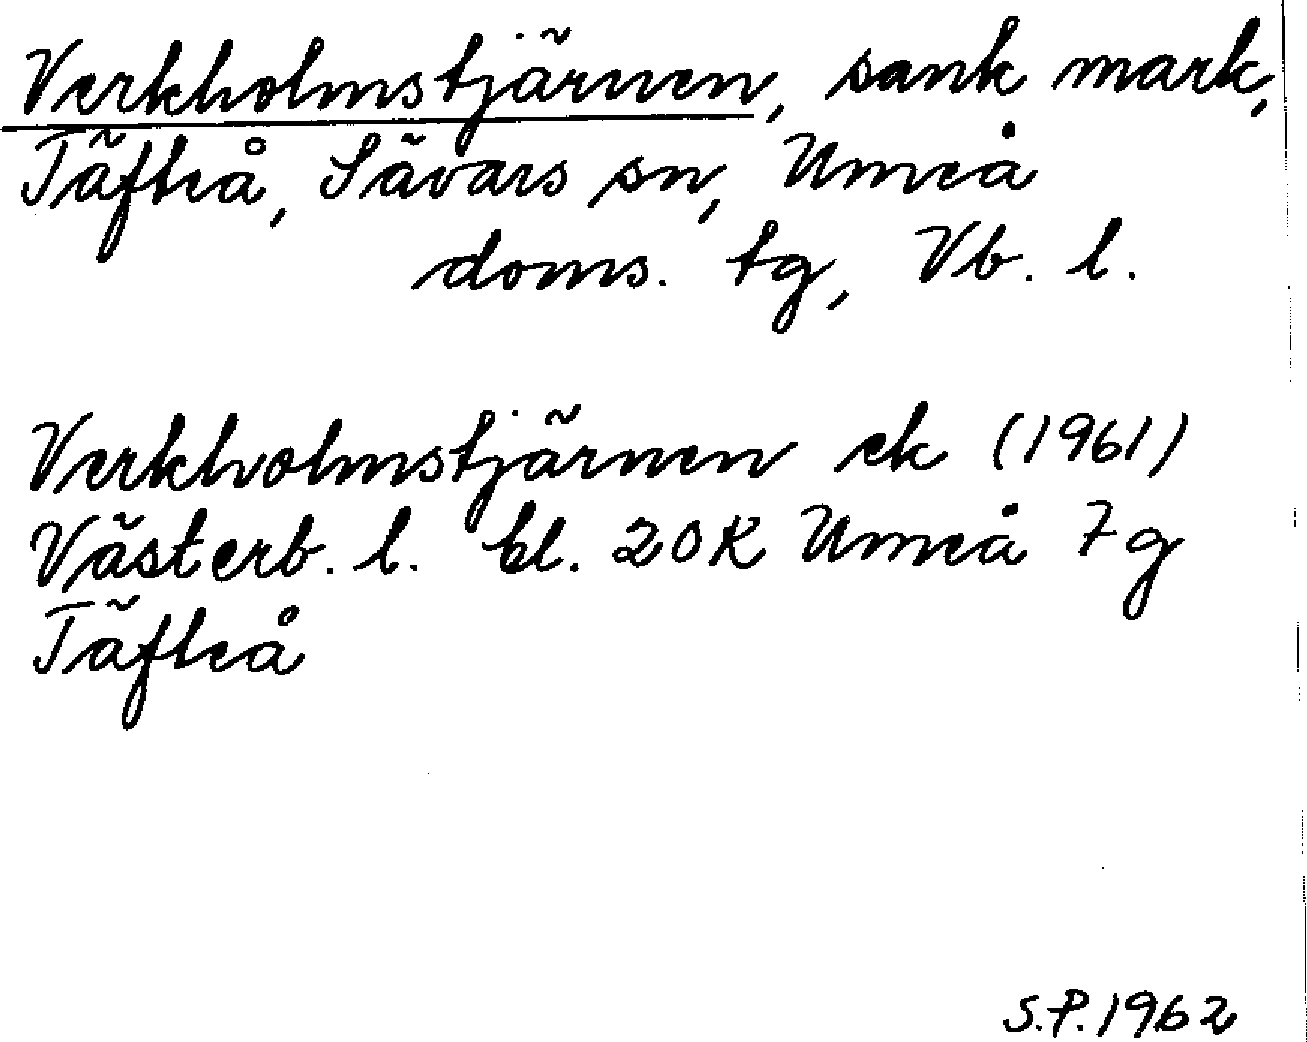 Verkholmstjärnen, sank mark,
Täfteå, Sävars sn, Umeå
doms. tg, Vb. l.
Verkholmstjärnen ek (1961)
Västerb. l. bl. 20K Umeå 7g
Täfteå
S.P.1962